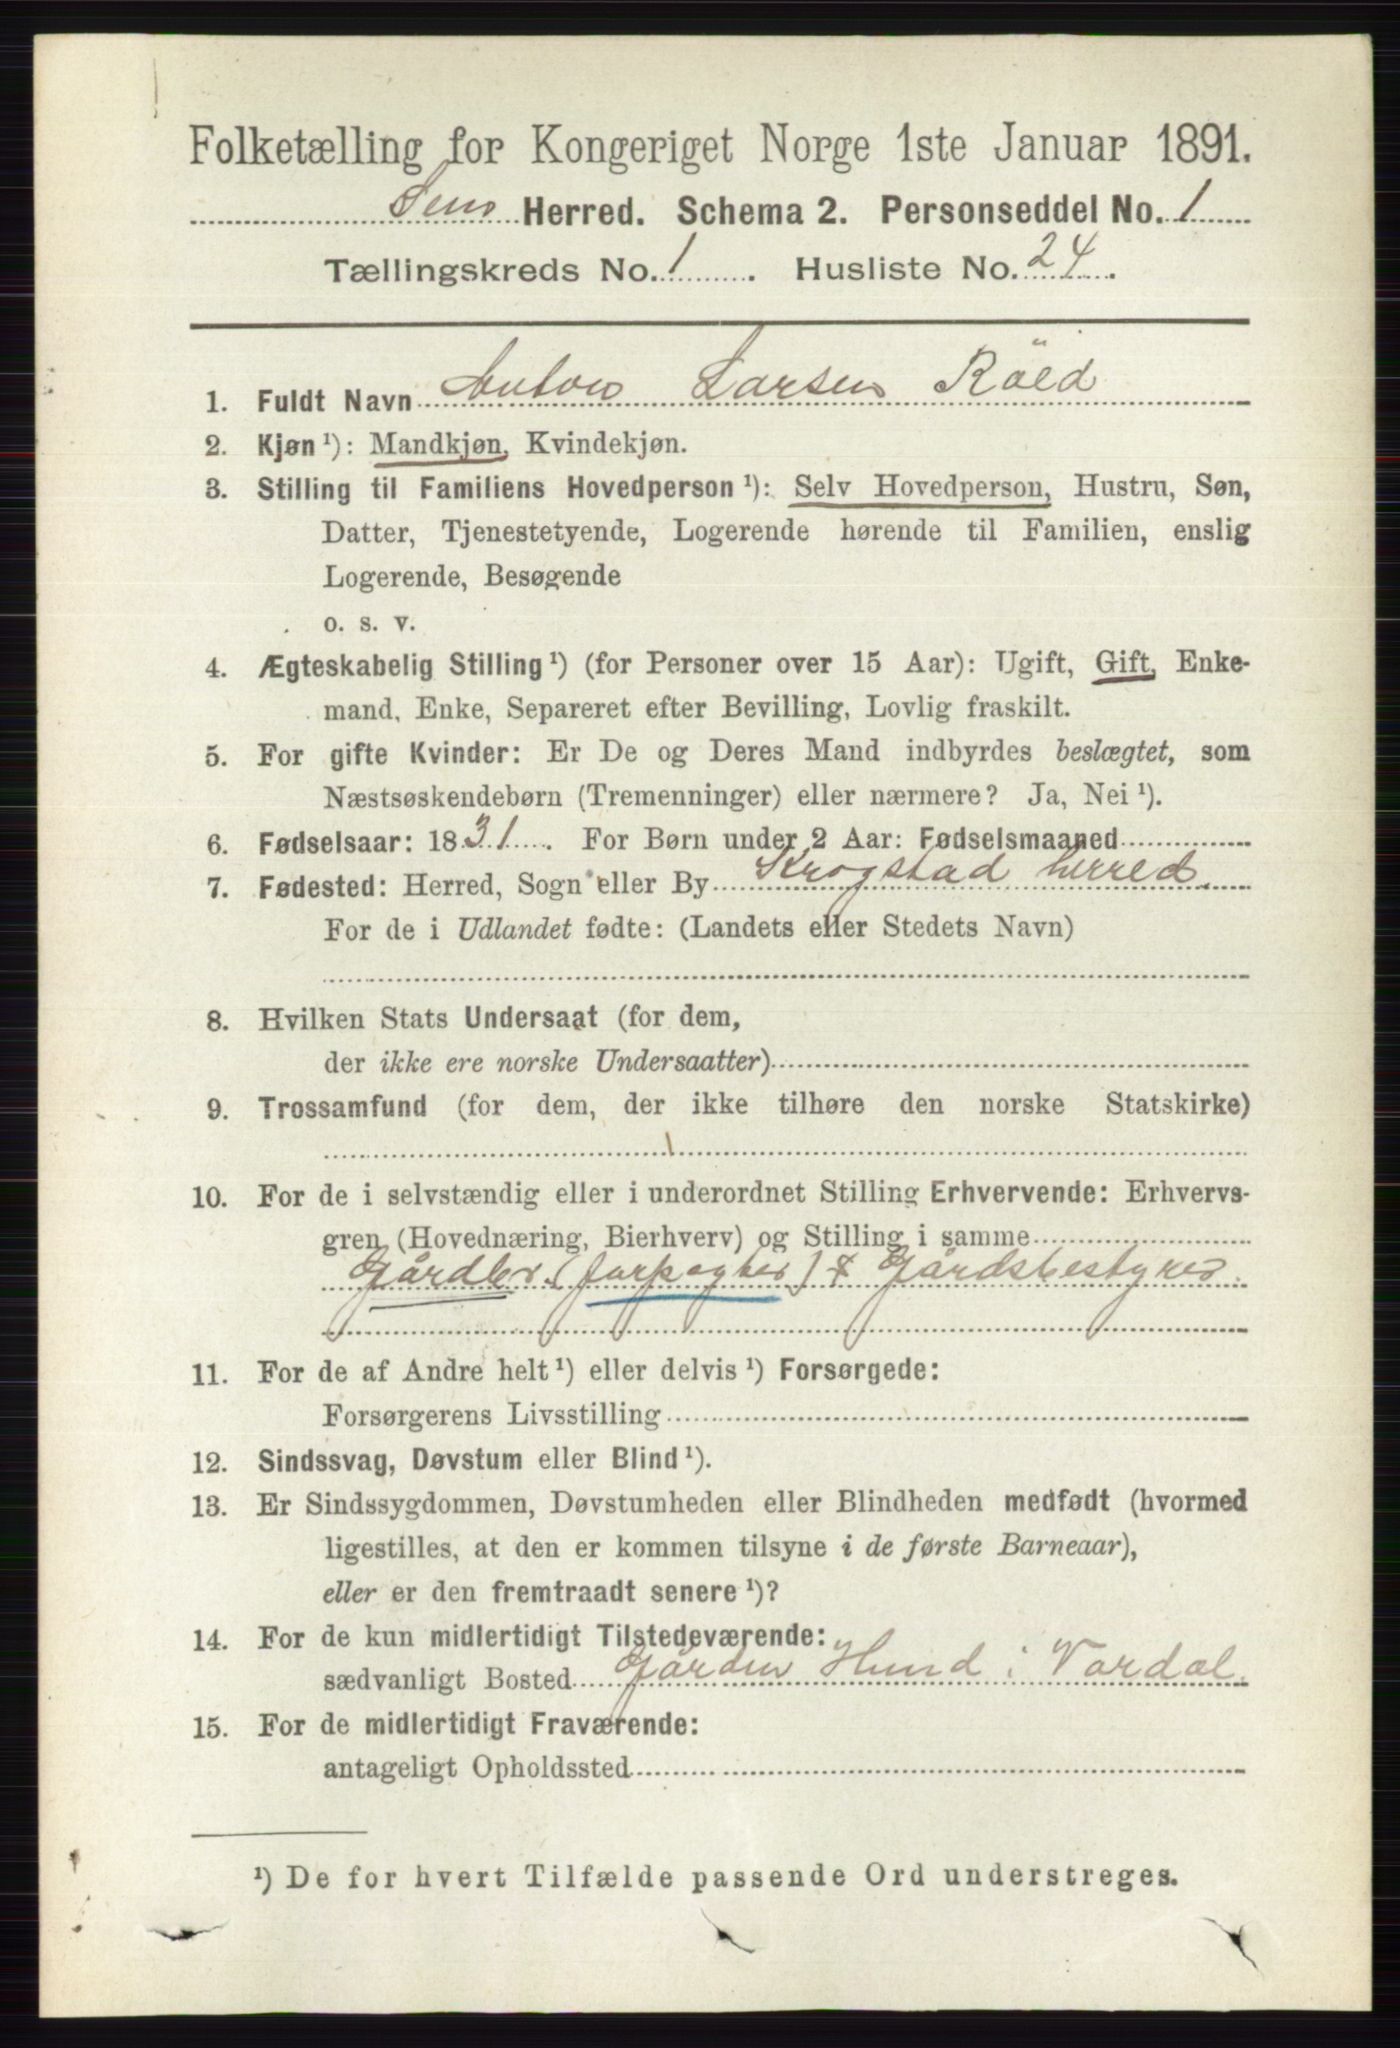 Folketælling for Kongeriget Norge 1ste Januar 1891.
Sem Herred. Schema 2. Personseddel No. 1
Tællingskreds No. 1. Husliste No. 24.
1. Fuldt Navn Anton Larsen Röed
2. Kjøn ¹): Mandkjøn, Kvindekjøn.
3. Stilling til Familiens Hovedperson ¹): Selv Hovedperson, Hustru, Søn,
Datter, Tjenestetyende, Logerende hørende til Familien, enslig
Logerende, Besøgende
o. s. v.
4. Ægteskabelig Stilling ¹) (for Personer over 15 Aar): Ugift, Gift, Enke-
mand, Enke, Separeret efter Bevilling, Lovlig fraskilt.
5. For gifte Kvinder: Er De og Deres Mand indbyrdes beslægtet, som
Næstsøskendebørn (Tremenninger) eller nærmere? Ja, Nei ¹).
6. Fødselsaar: 1831. For Børn under 2 Aar: Fødselsmaaned
7. Fødested: Herred, Sogn eller By Krogstad herred.
For de i Udlandet fødte: (Landets eller Stedets Navn)
8. Hvilken Stats Undersaat (for dem,
der ikke ere norske Undersaatter)
9. Trossamfund (for dem, der ikke tilhøre den norske Statskirke)
10. For de i selvstændig eller i underordnet Stilling Erhvervende: Erhvervs-
gren (Hovednæring, Bierhverv) og Stilling i samme
Gårdbr. (forpagter) & Gårdsbestyrer.
11. For de af Andre helt ¹) eller delvis ¹) Forsørgede:
Forsørgerens Livsstilling
12. Sindssvag, Døvstum eller Blind ¹).
13. Er Sindssygdommen, Døvstumheden eller Blindheden medfødt (hvormed
ligestilles, at den er kommen tilsyne i de første Barneaar),
eller er den fremtraadt senere ¹)?
14. For de kun midlertidigt Tilstedeværende:
sædvanligt Bosted Gården Hund i Vardal.
15. For de midlertidigt Fraværende:
antageligt Opholdssted
¹) De for hvert Tilfælde passende Ord understreges.